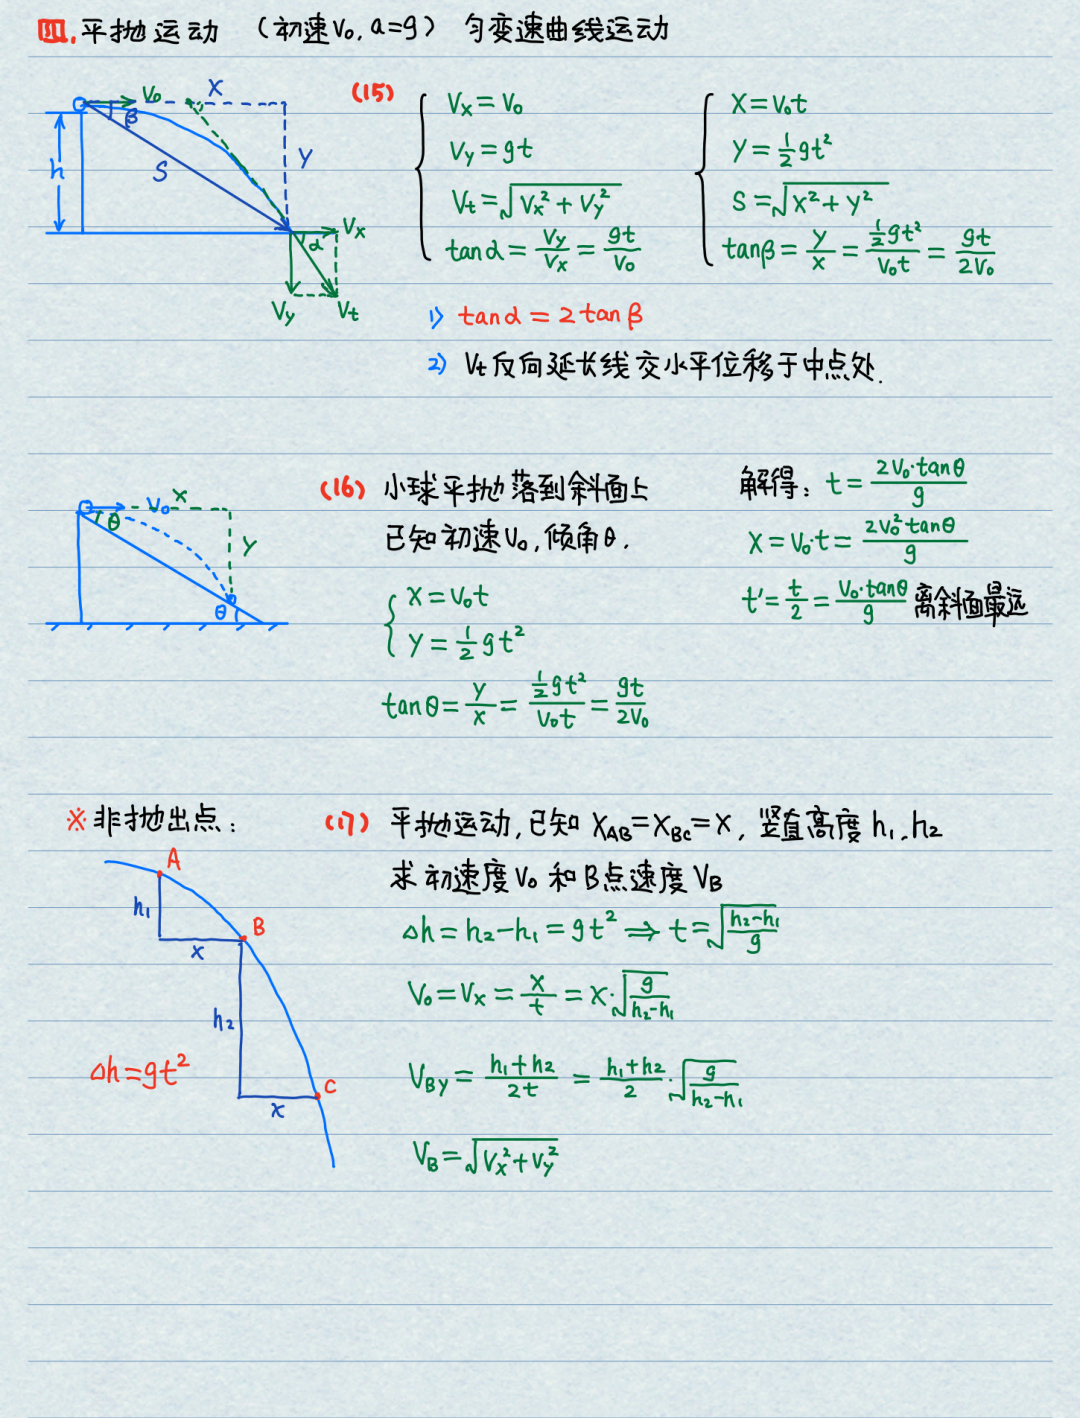 四. 平抛运动 (初速V₀, a=g) 匀变速曲线运动
V₀ X β h S Y Vx α Vy Vt
(15)
Vx = V₀
Vy = gt
Vt = √(Vx² + Vy²)
tanα = Vy/Vx = gt/V₀
X = V₀t
Y = ½gt²
S = √(X² + Y²)
tanβ = Y/X = ½gt²/V₀t = gt/2V₀
1) tanα = 2tanβ
2) Vt反向延长线交水平位移于中点处.
V₀ X θ Y θ
(16) 小球平抛落到斜面上
已知初速V₀, 倾角θ.
X = V₀t
Y = ½gt²
tanθ = Y/X = ½gt²/V₀t = gt/2V₀
解得: t = 2V₀·tanθ/g
X = V₀·t = 2V₀²tanθ/g
t' = t/2 = V₀·tanθ/g 离斜面最远
※ 非抛出点:
A h₁ x B h₂ x C
Δh = gt²
(17) 平抛运动, 已知 X_AB = X_BC = X, 竖直高度 h₁, h₂
求初速度V₀ 和B点速度V_B
Δh = h₂-h₁ = gt² ⇒ t = √((h₂-h₁)/g)
V₀ = Vx = X/t = X·√(g/(h₂-h₁))
V_By = (h₁+h₂)/2t = (h₁+h₂)/2 · √(g/(h₂-h₁))
V_B = √(Vx²+Vy²)